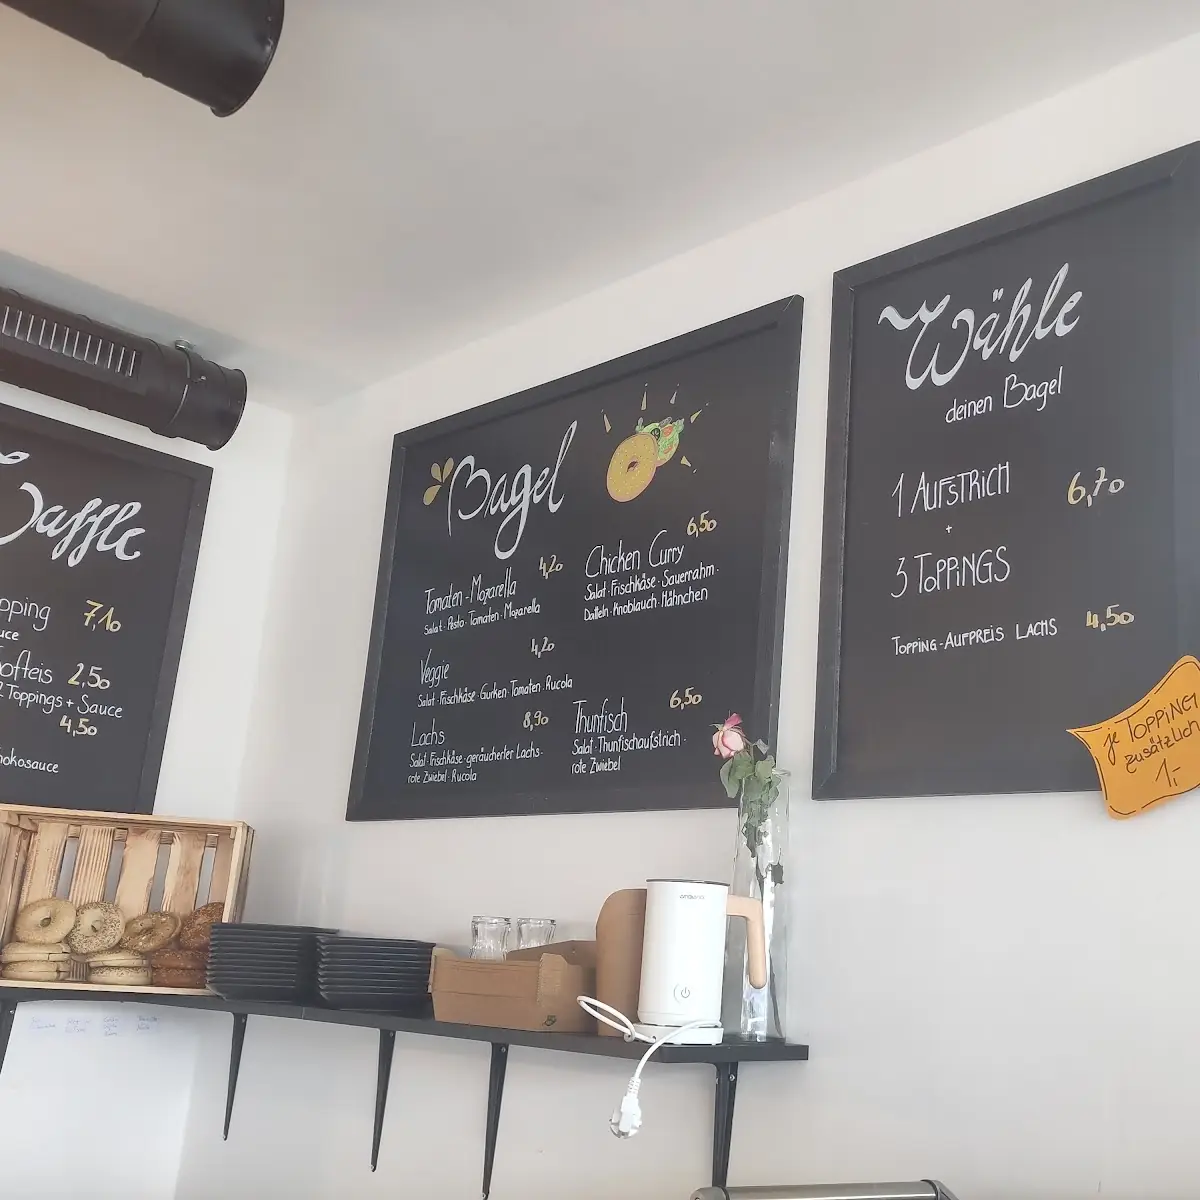 Waffle
pping 7,10
uce
ofteis 2,50
2 Toppings + Sauce
4,50
hokosauce
Bagel
4,20
Tomaten - Mozarella
Salat · Pesto · Tomaten · Mozarella
4,20
Veggie
Salat · Frischkäse · Gurken · Tomaten · Rucola
8,90
Lachs
Salat · Frischkäse · geräucherter Lachs ·
rote Zwiebel · Rucola
6,50
Chicken Curry
Salat · Frischkäse · Sauerrahm ·
Datteln · Knoblauch · Hähnchen
6,50
Thunfisch
Salat · Thunfischaufstrich ·
rote Zwiebel
Wähle
deinen Bagel
1 AUFSTRICH 6,70
+
3 TOPPINGS
TOPPING - AUFPREIS LACHS 4,50
je TOPPING
zusätzlich
1,-